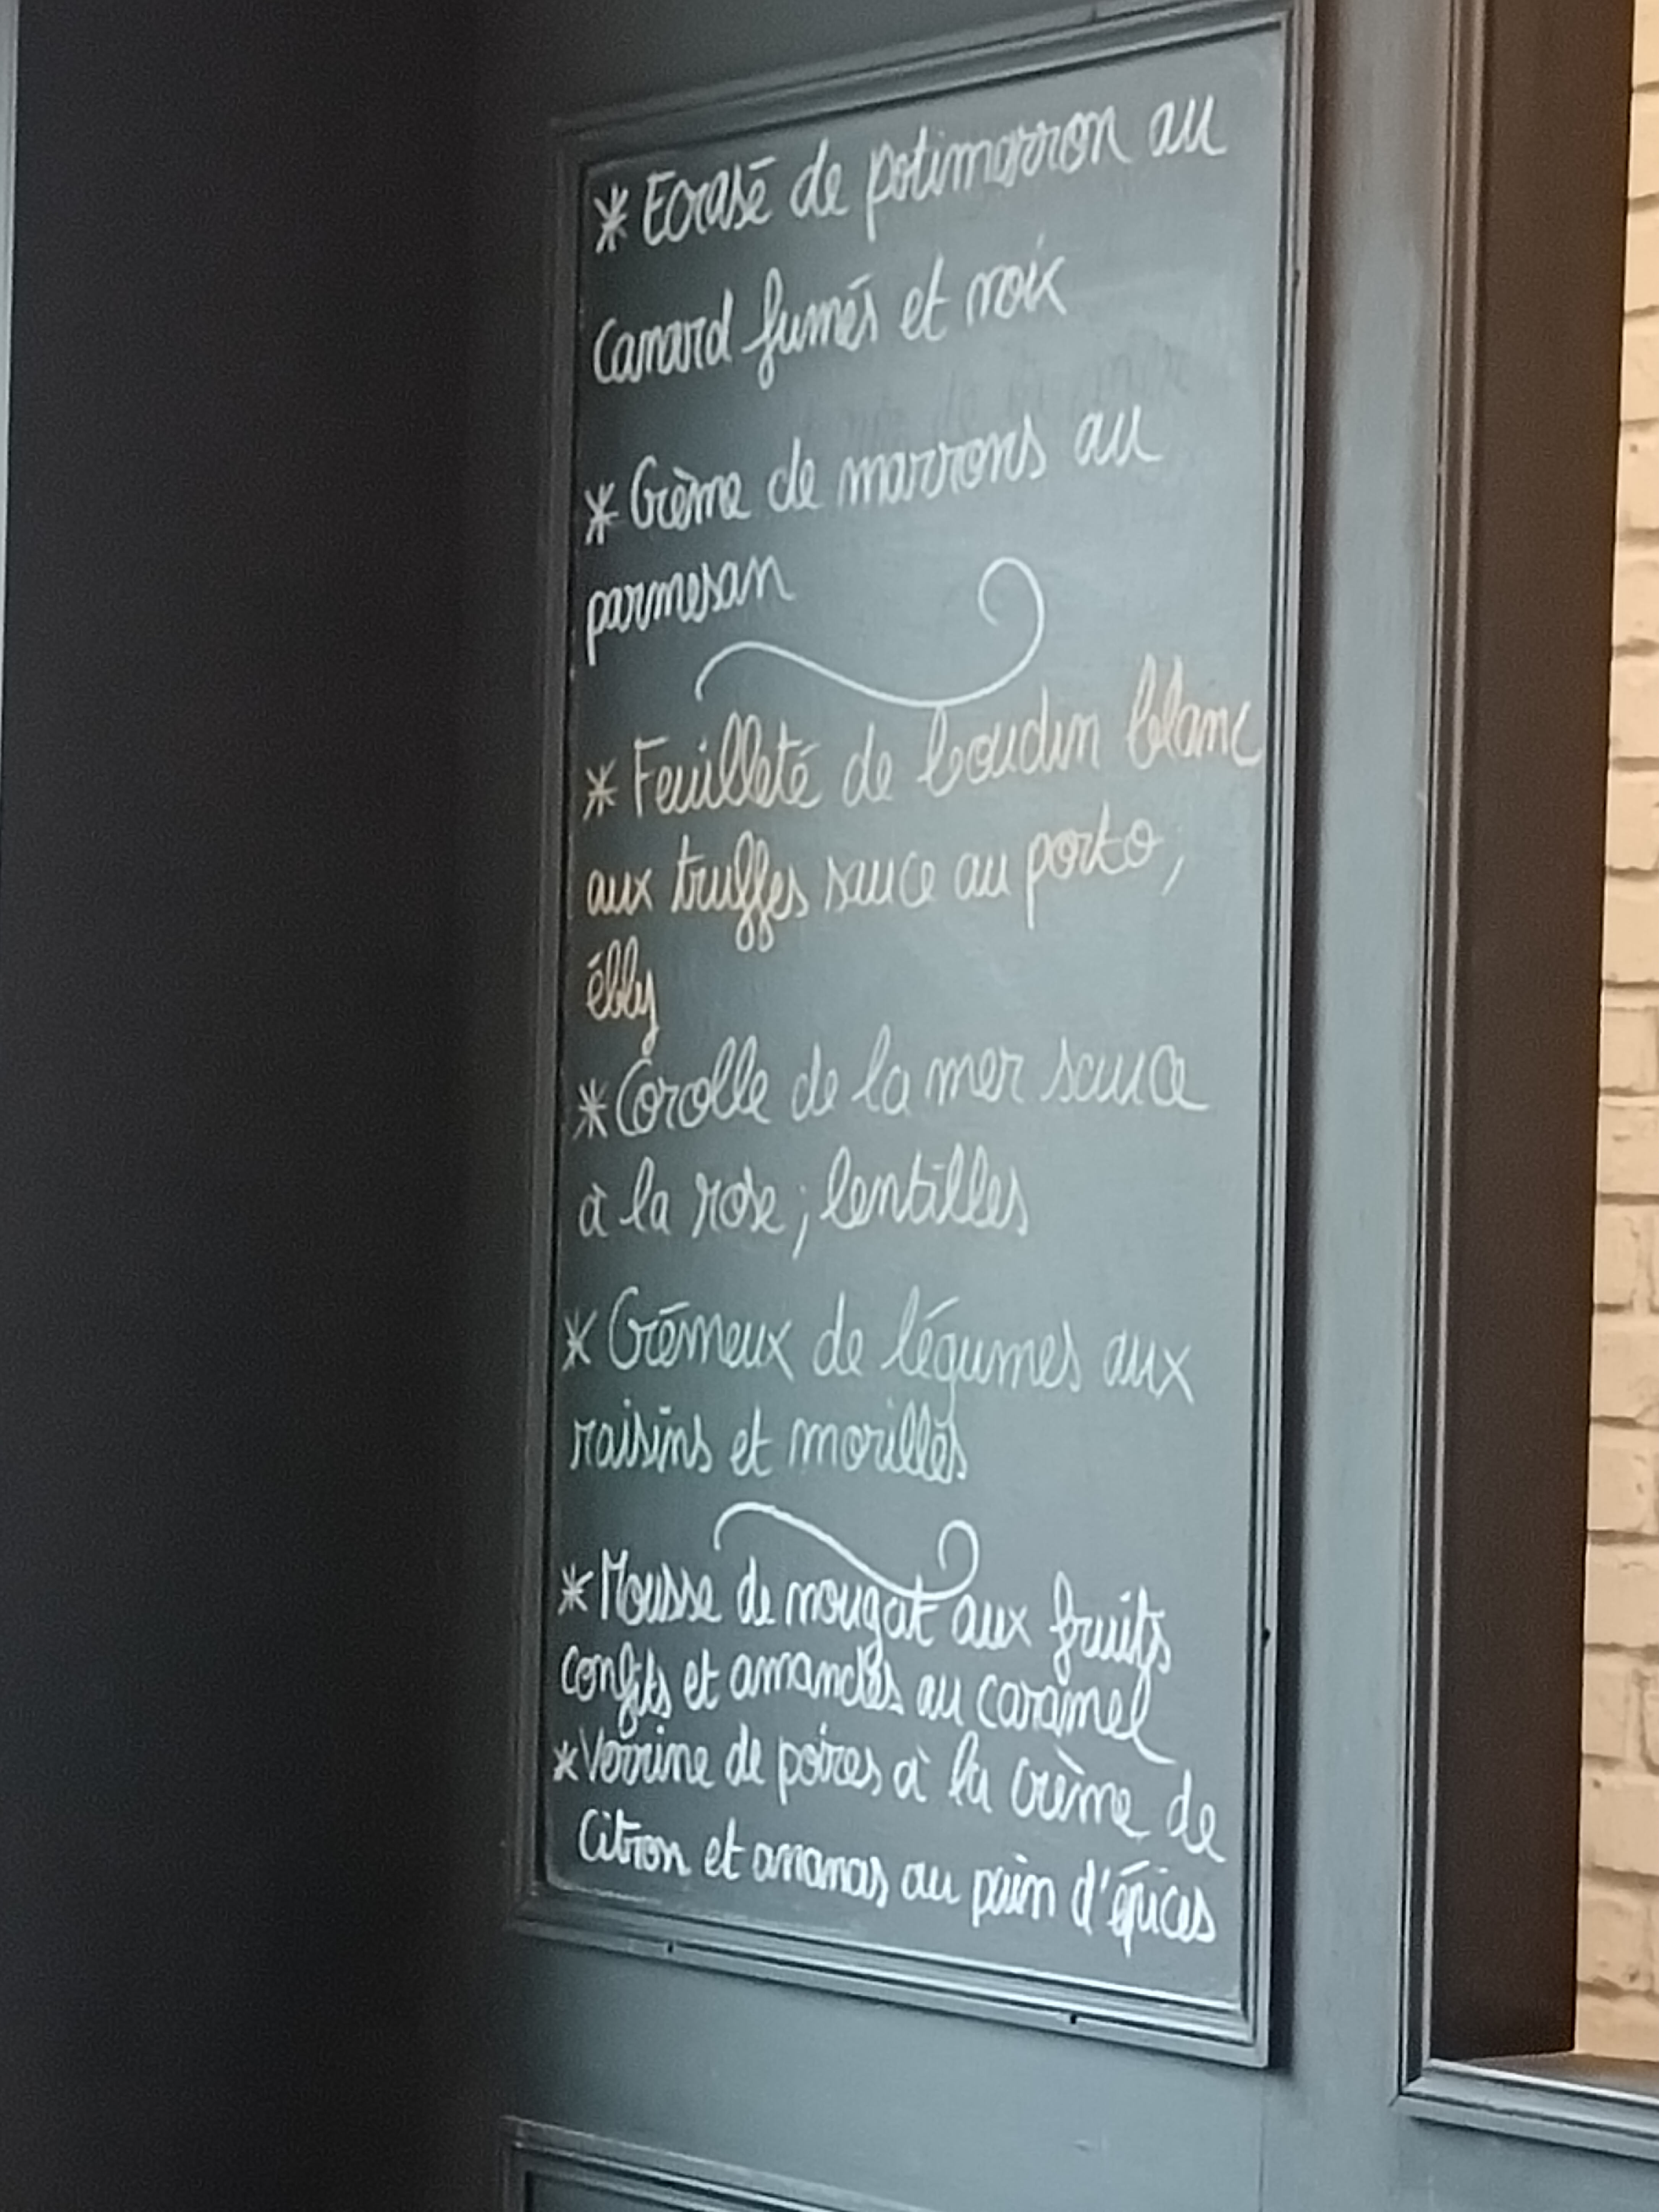 * Ecrasé de potimarron au
Canard fumés et noix
* Crème de marrons au
parmesan
* Feuilleté de boudin blanc
aux truffes sauce au porto ;
ébly
* Corolle de la mer sauce
à la rose ; lentilles
* Crémeux de légumes aux
raisins et morilles
* Mousse de nougat aux fruits
confits et amandes au caramel
* Verrine de poires à la crème de
Citron et ananas au pain d'épices